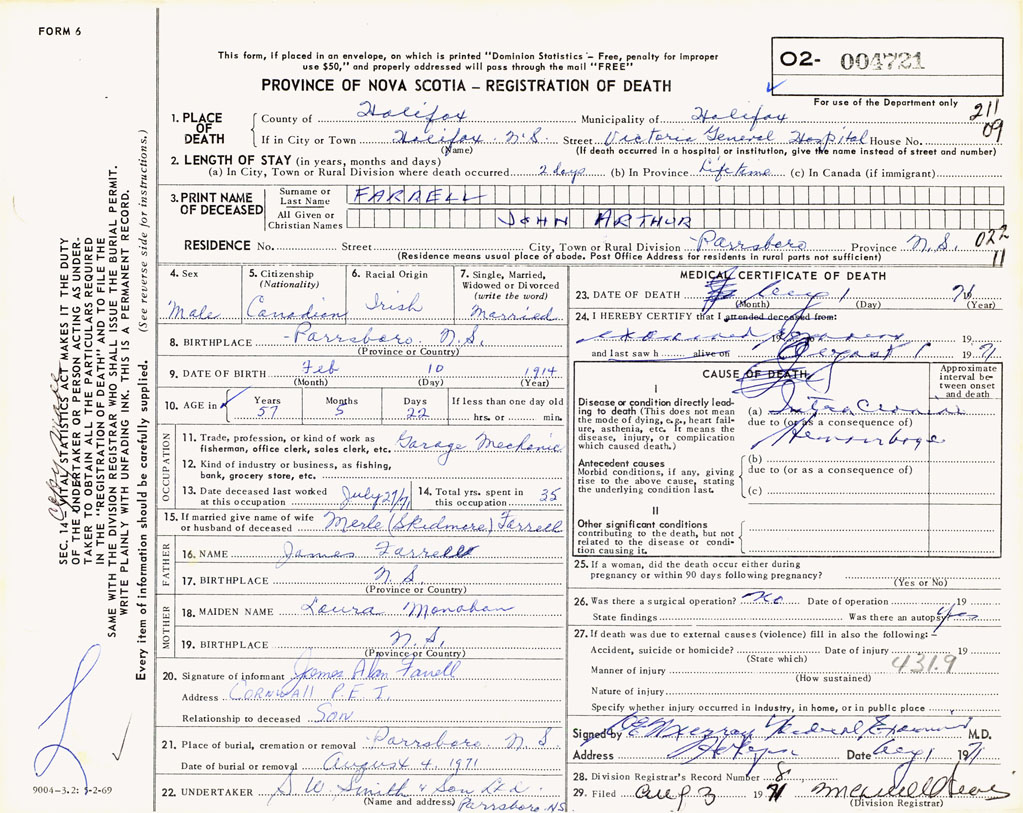 FORM 6
This form, if placed in an envelope, on which is printed "Dominion Statistics – Free, penalty for improper
use $50," and properly addressed will pass through the mail "FREE"
02- 004721
PROVINCE OF NOVA SCOTIA – REGISTRATION OF DEATH
For use of the Department only
1. PLACE OF DEATH
County of Halifax Municipality of Halifax 211
If in City or Town Halifax N.S. Street Victoria General Hospital House No. 09
(Name) (If death occurred in a hospital or institution, give the name instead of street and number)
2. LENGTH OF STAY (in years, months and days)
(a) In City, Town or Rural Division where death occurred 2 days (b) In Province Life time (c) In Canada (if immigrant)
3. PRINT NAME OF DECEASED
Surname or Last Name FARRELL
All Given or Christian Names JOHN ARTHUR
RESIDENCE No. Street City, Town or Rural Division Parrsboro Province N.S. 022
(Residence means usual place of abode. Post Office Address for residents in rural parts not sufficient) 11
4. Sex
Male
5. Citizenship
(Nationality)
Canadian
6. Racial Origin
Irish
7. Single, Married,
Widowed or Divorced
(write the word)
Married
8. BIRTHPLACE Parrsboro N.S.
(Province or Country)
9. DATE OF BIRTH Feb 10 1914
(Month) (Day) (Year)
10. AGE in Years Months Days If less than one day old
57 5 22 hrs. or min.
OCCUPATION
11. Trade, profession, or kind of work as
fisherman, office clerk, sales clerk, etc. Garage Mechanic
12. Kind of industry or business, as fishing,
bank, grocery store, etc.
13. Date deceased last worked
at this occupation July 27/71
14. Total yrs. spent in
this occupation 35
15. If married give name of wife
or husband of deceased Merle (Skidmore) Farrell
FATHER
16. NAME James Farrell
17. BIRTHPLACE N.S.
(Province or Country)
MOTHER
18. MAIDEN NAME Laura Monahan
19. BIRTHPLACE N.S.
(Province or Country)
20. Signature of informant James Alan Farrell
Address CORNWALL P.E.I.
Relationship to deceased SON
21. Place of burial, cremation or removal Parrsboro N S
Date of burial or removal August 4, 1971
22. UNDERTAKER S. W. Smith & Son Ltd.
(Name and address) Parrsboro NS
MEDICAL CERTIFICATE OF DEATH
23. DATE OF DEATH Aug 1 71
(Month) (Day) (Year)
24. I HEREBY CERTIFY that I attended deceased from:
examined 19 19
and last saw h alive on August 1 1971
CAUSE OF DEATH
Approximate
interval be-
tween onset
and death
I
Disease or condition directly lead-
ing to death (This does not mean
the mode of dying, e.g., heart fail-
ure, asthenia, etc. It means the
disease, injury, or complication
which caused death.)
(a) Intra Cranial
due to (or as a consequence of)
Hemorrhage
Antecedent causes
Morbid conditions, if any, giving
rise to the above cause, stating
the underlying condition last.
(b)
due to (or as a consequence of)
(c)
II
Other significant conditions
contributing to the death, but not
related to the disease or condi-
tion causing it.
25. If a woman, did the death occur either during
pregnancy or within 90 days following pregnancy?
(Yes or No)
26. Was there a surgical operation? No Date of operation 19
State findings Was there an autopsy Yes
27. If death was due to external causes (violence) fill in also the following: –
Accident, suicide or homicide? Date of injury 19
(State which) 431.9
Manner of injury
(How sustained)
Nature of injury
Specify whether injury occurred in industry, in home, or in public place
Signed by M.D.
Address Date Aug 1 1971
28. Division Registrar's Record Number 8
29. Filed Aug 3 1971
(Division Registrar)
SEC. 14 – VITAL STATISTICS ACT MAKES IT THE DUTY
OF THE UNDERTAKER OR PERSON ACTING AS UNDER-
TAKER TO OBTAIN ALL THE PARTICULARS REQUIRED
IN THE "REGISTRATION OF DEATH" AND TO FILE THE
SAME WITH THE DIVISION REGISTRAR WHO SHALL ISSUE THE BURIAL PERMIT.
WRITE PLAINLY WITH UNFADING INK. THIS IS A PERMANENT RECORD.
Every item of information should be carefully supplied. (See reverse side for instructions.)
9004-3.2: 5-2-69